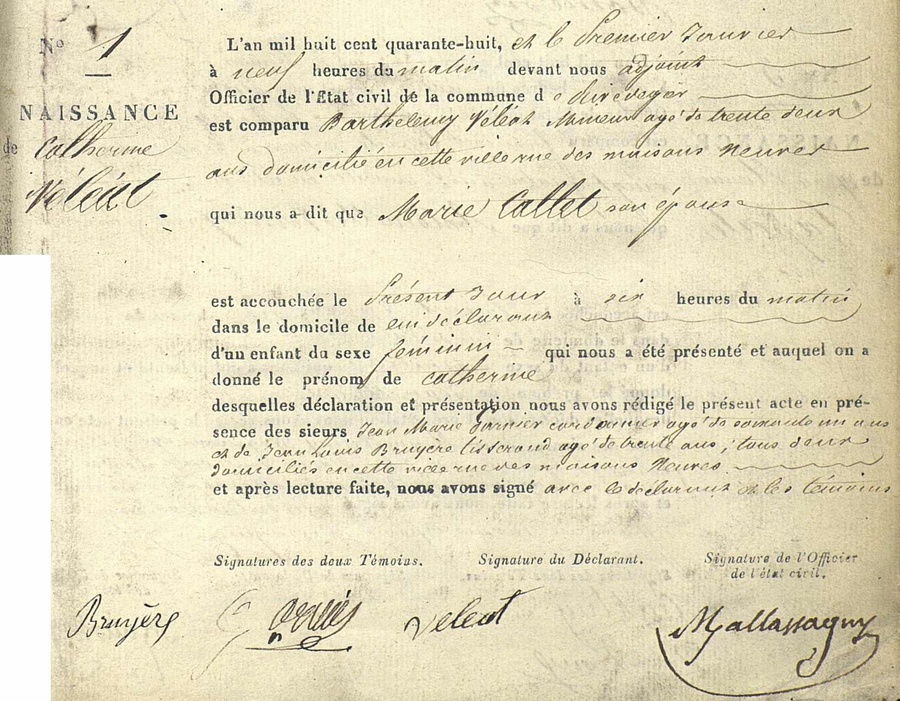 N° 1
NAISSANCE
de Catherine
Véléat
L'an mil huit cent quarante-huit, et le Premier Janvier
à neuf heures du matin devant nous adjoint
Officier de l'État civil de la commune d
est comparu Barthelemy Véléat Mineur agé de trente deux
ans domicilié en cette ville rue des maisons neuves
qui nous a dit que Marie Callet son épouse
est accouchée le Présent Jour à six heures du matin
dans le domicile de lui déclarant
d'un enfant du sexe féminin qui nous a été présenté et auquel on a
donné le prénom de Catherine
desquelles déclaration et présentation nous avons rédigé le présent acte en pré-
sence des sieurs Jean Marie cordonnier agé de soixante un ans
et de Jean Louis Bruyère tisserand agé de trente ans, tous deux
domiciliés en cette ville rue des maisons Neuves
et après lecture faite, nous avons signé avec le déclarant et les témoins
Signatures des deux Témoins. Signature du Déclarant. Signature de l'Officier
de l'état civil.
Bruyère Veleat